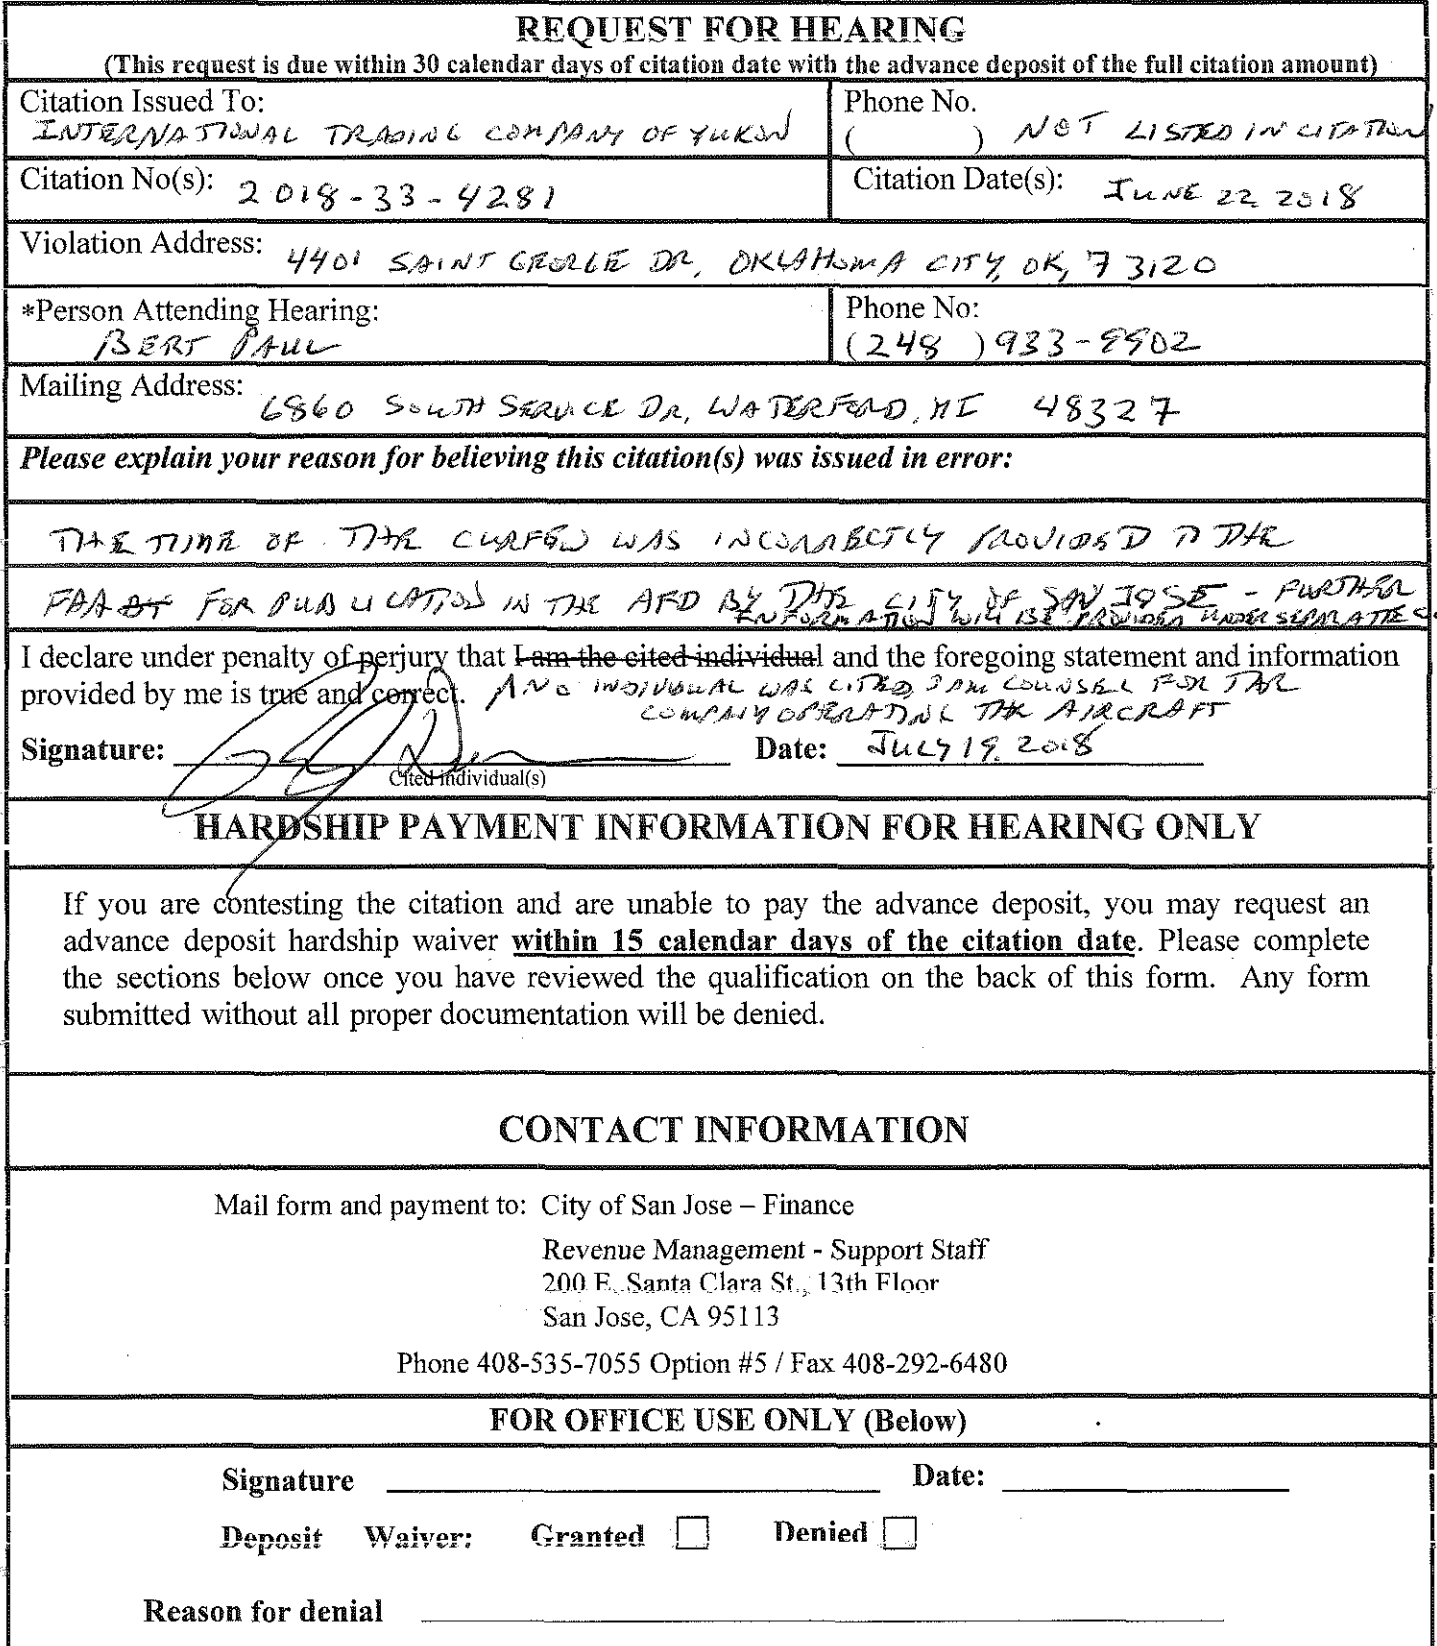 REQUEST FOR HEARING
(This request is due within 30 calendar days of citation date with the advance deposit of the full citation amount)
Citation Issued To:
INTERNATIONAL TRADING COMPANY OF YUKON
Phone No.
( ) NOT LISTED IN CITATION
Citation No(s): 2018-33-4281
Citation Date(s): JUNE 22 2018
Violation Address: 4401 SAINT GEORGE DR, OKLAHOMA CITY, OK, 73120
*Person Attending Hearing:
BERT PAUL
Phone No:
(248 ) 933-9902
Mailing Address: 6860 SOUTH SERVICE DR, WATERFORD, MI 48327
Please explain your reason for believing this citation(s) was issued in error:
THE TIME OF THE CURFEW WAS INCORRECTLY PROVIDED TO THE
FAA FOR PUBLICATION IN THE AFD BY THE CITY OF SAN JOSE - FURTHER
INFORMATION WILL BE PROVIDED UNDER SEPARATE
I declare under penalty of perjury that I am the cited individual and the foregoing statement and information
provided by me is true and correct. NO INDIVIDUAL WAS CITED, I AM COUNSEL FOR THE
COMPANY OPERATING THE AIRCRAFT
Signature: Date: JULY 19, 2018
Cited individual(s)
HARDSHIP PAYMENT INFORMATION FOR HEARING ONLY
If you are contesting the citation and are unable to pay the advance deposit, you may request an
advance deposit hardship waiver within 15 calendar days of the citation date. Please complete
the sections below once you have reviewed the qualification on the back of this form. Any form
submitted without all proper documentation will be denied.
CONTACT INFORMATION
Mail form and payment to: City of San Jose – Finance
Revenue Management - Support Staff
200 E. Santa Clara St., 13th Floor
San Jose, CA 95113
Phone 408-535-7055 Option #5 / Fax 408-292-6480
FOR OFFICE USE ONLY (Below)
Signature Date:
Deposit Waiver: Granted Denied
Reason for denial